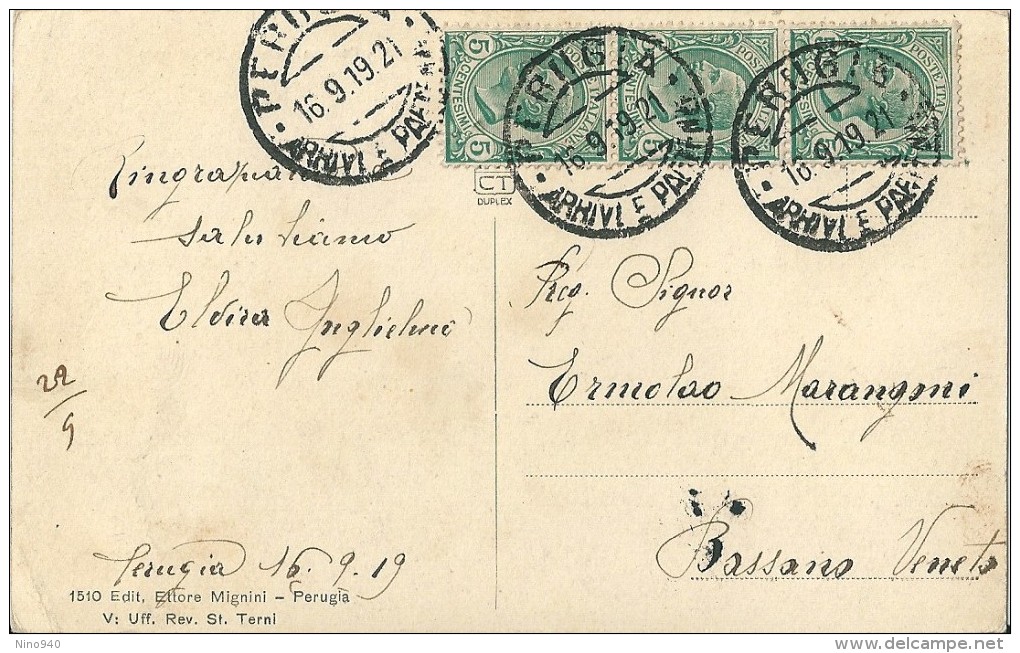 PERUGIA
16.9.19.21
ARRIVI E PARTENZE
5 CENTESIMI 5
POSTE ITALIANE
PERUGIA
16.9.19.21
ARRIVI E PARTENZE
POSTE ITALIANE
PERUGIA
16.9.19.21
ARRIVI E PARTENZE
CT
DUPLEX
Ringraziano
salutiamo
Elvira Inglielmi
22/9
Preg. Signor
Ermolao Marangoni
Bassano Veneto
Perugia 16.9.19
1510 Edit, Ettore Mignini - Perugia
V: Uff. Rev. St. Terni
Nino940
delcampe.net